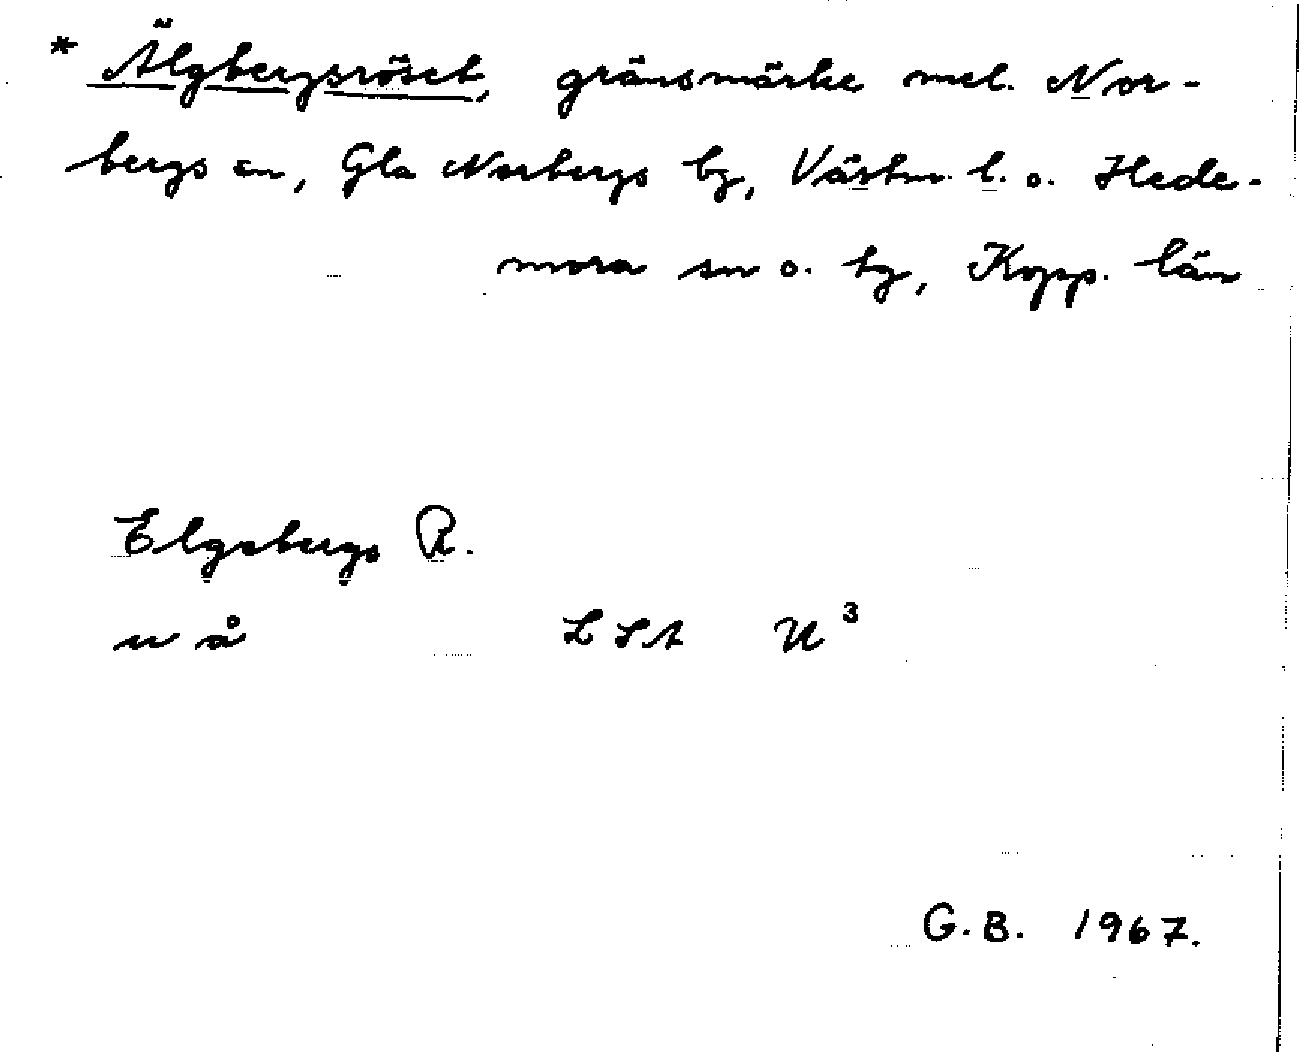 * Älgbergsröset, gränsmärke mel. Nor-
bergs sn, Gla Norbergs bg, Västm. l. o. Hede-
mora sn o. tg, Kopp. län
Elgsbergs R.
u å LSA U³
G.B. 1967.